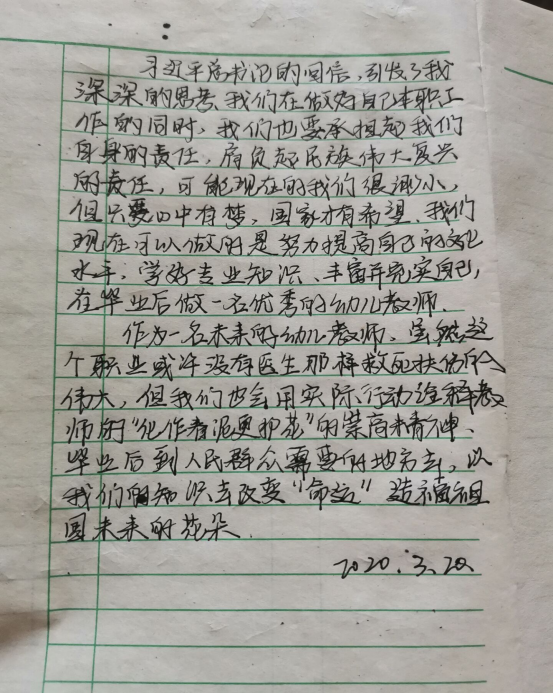 习近平总书记的回信,引发了我
深深的思考、我们在做好自己本职工
作的同时,我们也要承担起我们
自身的责任,肩负起民族伟大复兴
的责任,可能现在的我们很渺小,
但只要心中有梦,国家才有希望、我们
现在可以做的是努力提高自己的文化
水平,学好专业知识、丰富并充实自己,
在毕业后做一名优秀的幼儿教师.
作为一名未来的幼儿教师、虽然这
个职业或许没有医生那样救死扶伤的
伟大,但我们也会用实际行动诠释教
师的“化作春泥更护花”的崇高精神、
毕业后到人民群众需要的地方去,以
我们的知识去改变“命运”造福祖
国未来的花朵.
2020.3.20